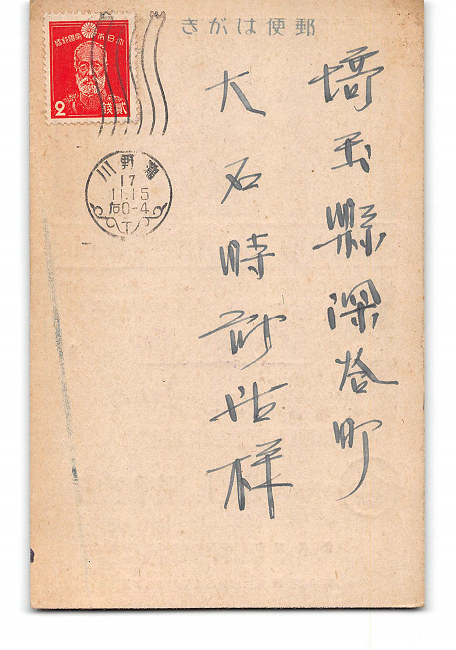 郵便はがき
埼玉縣深谷町
大石時計店様
大日本帝國郵便
2
貳錢
川野瀧
17
11.15
后0-4